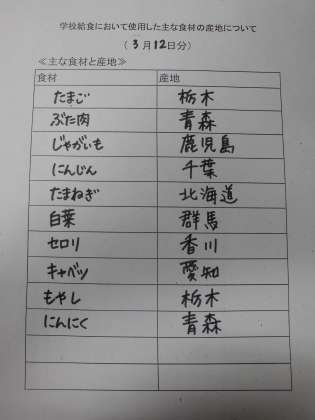 学校給食において使用した主な食材の産地について
(3月12日分)
≪主な食材と産地≫
食材 産地
たまご 栃木
ぶた肉 青森
じゃがいも 鹿児島
にんじん 千葉
たまねぎ 北海道
白菜 群馬
セロリ 香川
キャベツ 愛知
もやし 栃木
にんにく 青森